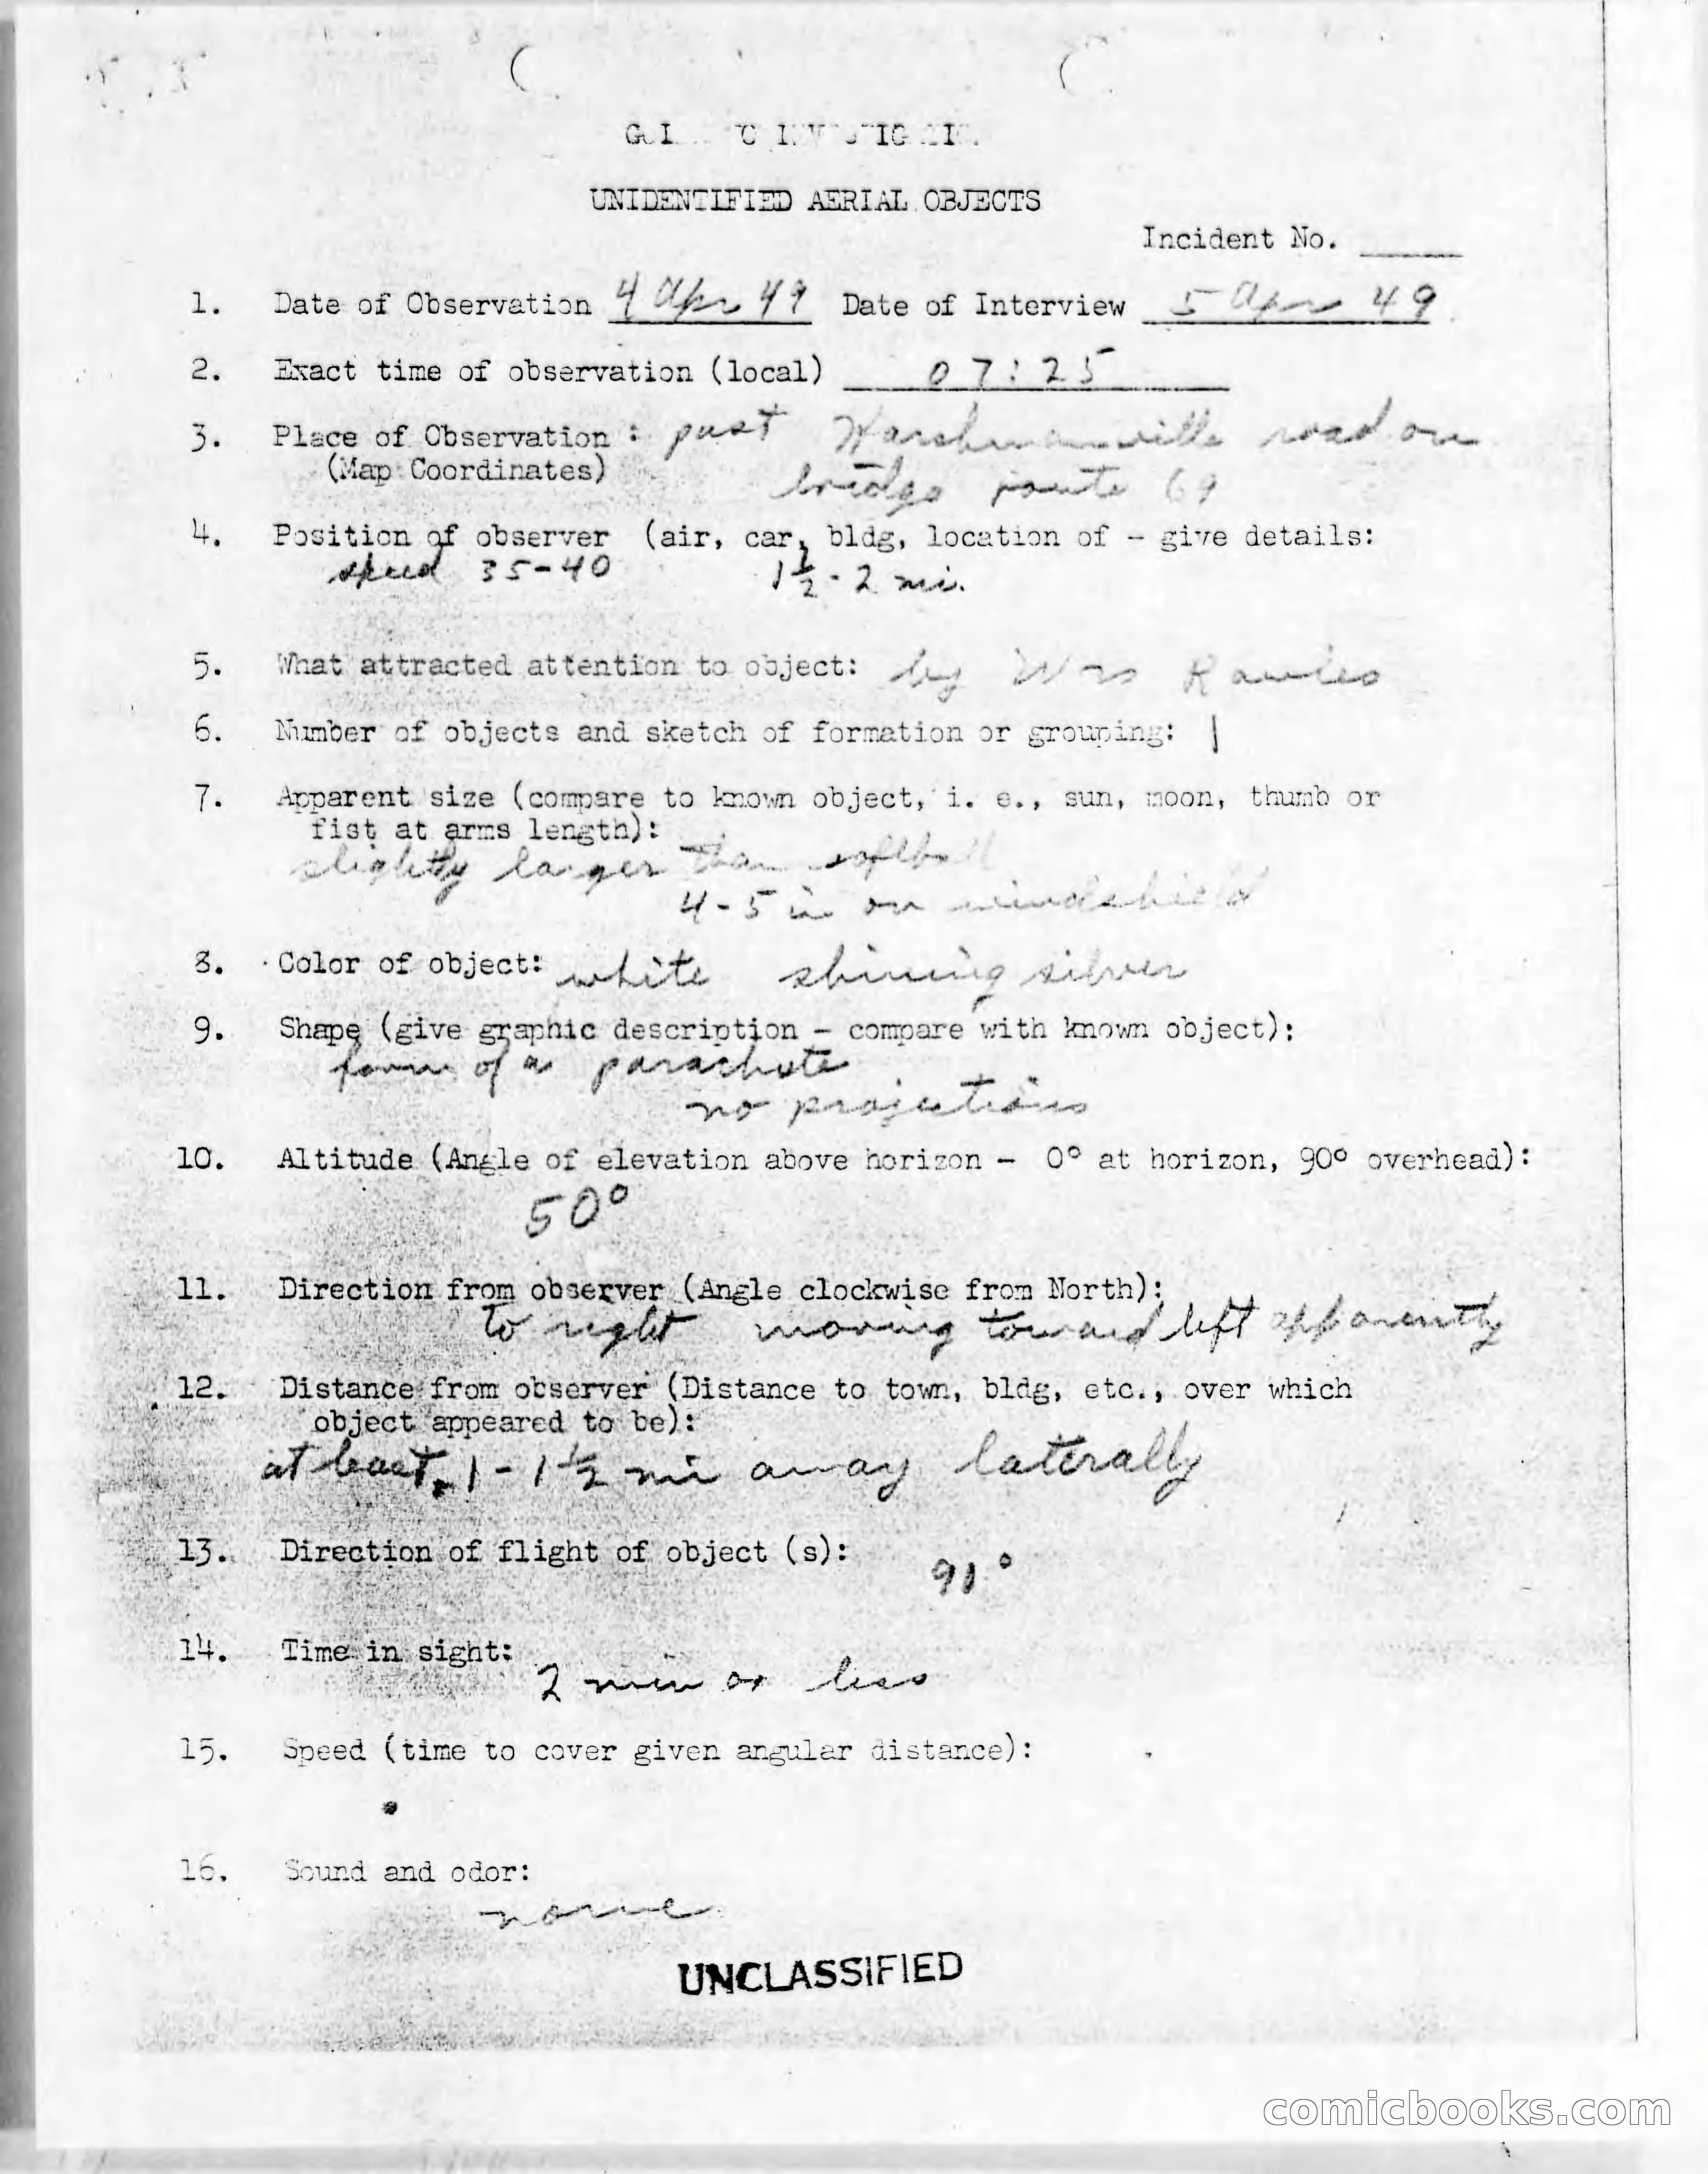 UNIDENTIFIED AERIAL OBJECTS
Incident No.
1. Date of Observation 4 Apr 49 Date of Interview 5 Apr 49
2. Exact time of observation (local) 07:25
3. Place of Observation : past road on
(Map Coordinates) bridge route 69
4. Position of observer (air, car, bldg, location of - give details:
speed 35-40 1½-2 mi.
5. What attracted attention to object: by Mrs
6. Number of objects and sketch of formation or grouping: 1
7. Apparent size (compare to known object, i. e., sun, moon, thumb or
fist at arms length):
slightly larger than softball
4-5 in on windshield
8. Color of object: white shining silver
9. Shape (give graphic description - compare with known object):
form of a parachute
no projections
10. Altitude (Angle of elevation above horizon - 0° at horizon, 90° overhead):
50°
11. Direction from observer (Angle clockwise from North):
To right moving toward left apparently
12. Distance from observer (Distance to town, bldg, etc., over which
object appeared to be):
at least 1-1½ mi away laterally
13. Direction of flight of object (s): 91°
14. Time in sight:
2 min or less
15. Speed (time to cover given angular distance):
16. Sound and odor:
none
UNCLASSIFIED
comicbooks.com